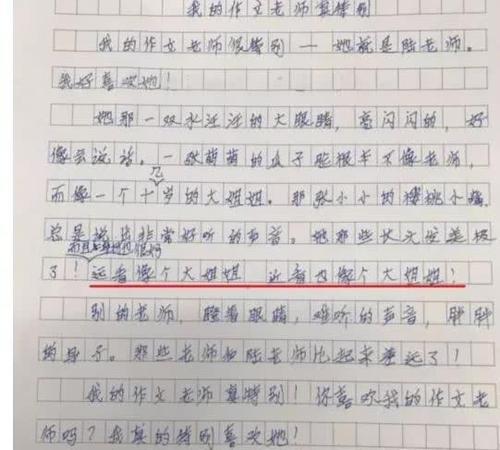 我的作文老师真特别
我的作文老师很特别——她就是陆老师。
我好喜欢她！
她那一双水汪汪的大眼睛，亮闪闪的，好
像会说话。一张萌萌的瓜子脸根本不像老师，
几
而像一个十岁的大姐姐。那张小小的樱桃小嘴
总是说出非常好听的声音。她那些长大变美极
很好
了！远看像个大姐姐 近看也像个大姐姐！
别的老师，瞪着眼睛，难听的声音，胖胖
的身子。那些老师和陆老师比起来差远了！
我的作文老师真特别！你喜欢我的作文老
师吗？我真的特别喜欢她！